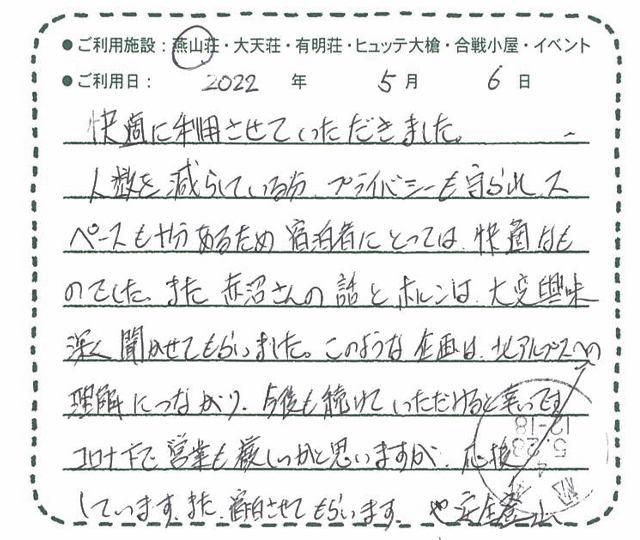 ●ご利用施設：燕山荘・大天荘・有明荘・ヒュッテ大槍・合戦小屋・イベント
●ご利用日： 2022 年 5月 6日
快適に利用させていただきました。
人数を減らしている分、プライバシーも守られ、ス
ペースも十分あるため宿泊者にとっては、快適なも
のでした。また赤沼さんの話とホルンは、大変興味
深く聞かせてもらいました。このような企画は、北アルプスへの
理解につながり、今後も続けていただけると幸いです
コロナ下で営業も厳しいかと思いますが、応援
しています。また、宿泊させてもらいます。 安全登山
5.23
12-18